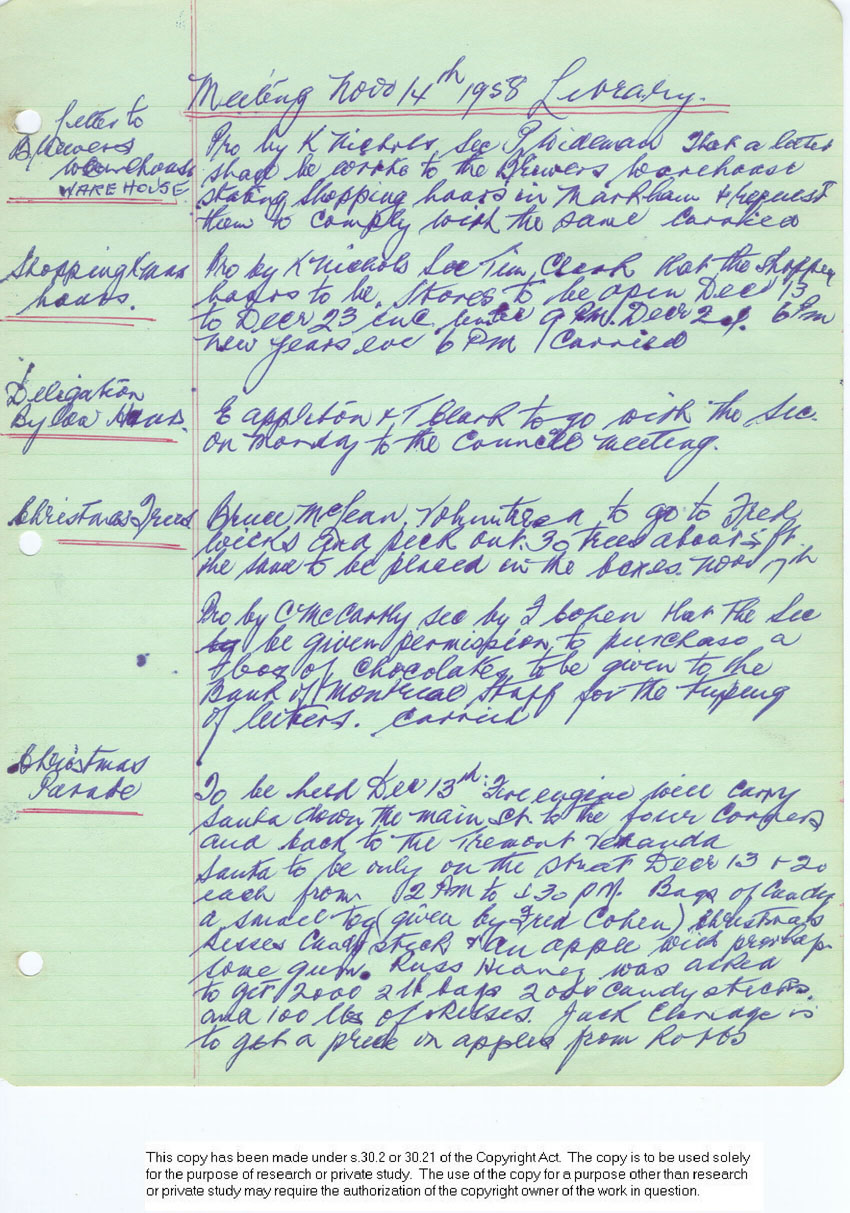 Meeting Nov 14th 1958 Library.
Letter to
Brewers
warehouse
WAREHOUSE
Pro by K Nichols Sec P Wideman That a letter
shall be wrote to the Brewers Warehouse
stating shopping hours in Markham & request
them to comply with the same Carried
Shopping Xmas
hours.
Pro by K Nichols Sec Tim Clark that the shopping
hours to be. Stores to be open Dec 13
to Decr 23 inc. until 9 PM. Decr 24. 6 PM
New Years eve 6 PM Carried
Deligation
By law Hours.
E Appleton & T Clark to go with the Sec.
on Monday to the Council meeting.
Christmas Trees
Bruce McLean Volunteered to go to Fred
Wicks and pick out 30 trees about 5 ft.
the same to be placed in the boxes. Nov 7th
Pro by C McCarthy sec by J that the Sec
be given permission to purchase a
box of Chocolates to be given to the
Bank of Montreal Staff for the typeing
of letters. Carried
Christmas
Parade
To be held Decr 13th. Fire engine will carry
Santa down the main st. to the four Corners
and back to the Tremont Veranda
Santa to be only on the street Decr 13 & 20
each from 2 PM to 30 PM. Bags of Candy
a small toy (given by Fred Cohen) Christmas
Kisses Candy stick & an apple with prerhaps
some gum. Russ was asked
to get 2000 2 lb bags 2000 Candy sticks.
and 100 lbs of Kisses. Jack is
to get a price on apples from Robbs
This copy has been made under s.30.2 or 30.21 of the Copyright Act. The copy is to be used solely
for the purpose of research or private study. The use of the copy for a purpose other than research
or private study may require the authorization of the copyright owner of the work in question.